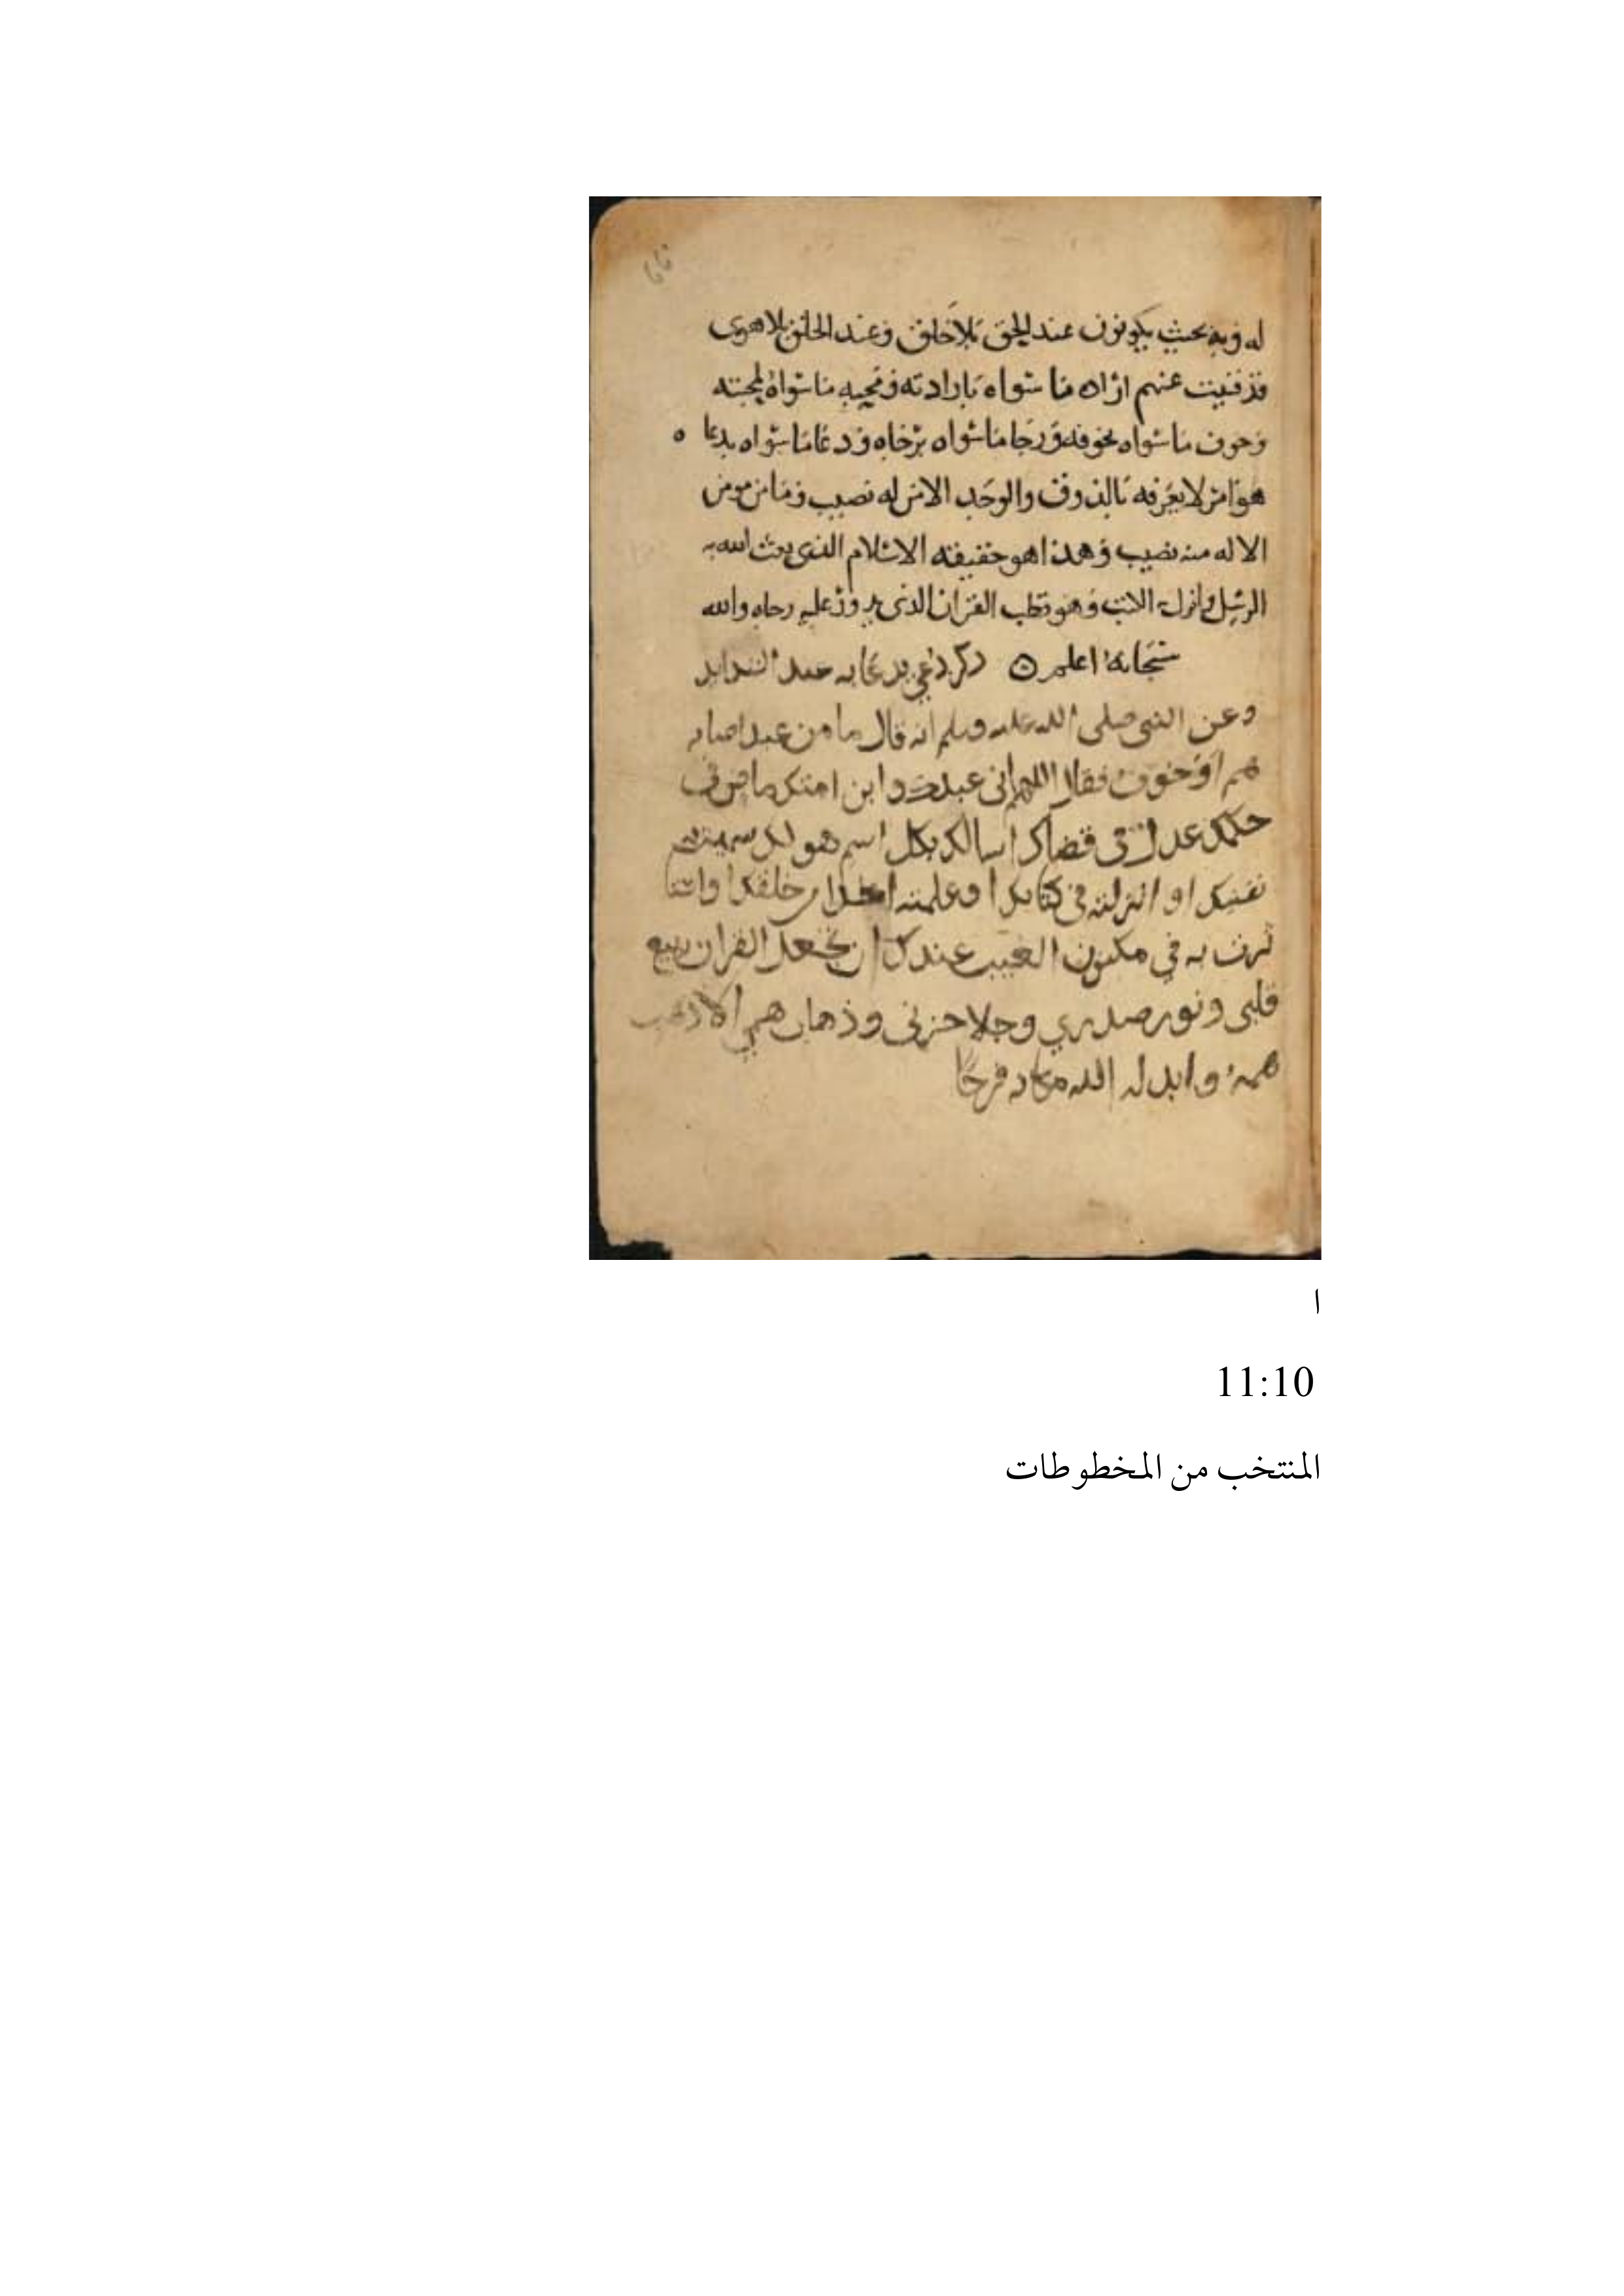 له وبه بحيث يكونون عند الحق بلا خلق وعند الخلق بلا هوى
قد فنيت عنهم ارادة ما سواه بارادته ومحبه ما سواه بمحبته
وخوف ما سواه بخوفه ورجا ما سواه برجاه ودعا ما سواه بدعا ه
هو امر لا يعرفه بالذوق والوجد الا من له نصيب وما من مومن
الا له منه نصيب وهذا هو حقيقه الاسلام الذى بعث الله به
الرسل وانزل به الكتب وهو قطب القران الذى يدور عليه رحاه والله
سبحانه اعلم ه ذكر دعي يدعا به عند الشدايد
وعن النبى صلى الله عليه وسلم انه قال ما من عبد اصابه
هم او خوف فقال اللهم انى عبدك وابن امتك ماض فى
حكمك عدل فى قضاك اسالك بكل اسم هو لك سميت به
نفسك او انزلته في كتابك او علمته احدا من خلقك او استا
ثرت به في مكنون الغيب عندك ان تجعل القران ربيع
قلبى ونور صدري وجلا حزنى وذهاب همي الا اذهب
همه وابدله الله مكانه فرحًا
ا
11:10
المنتخب من المخطوطات